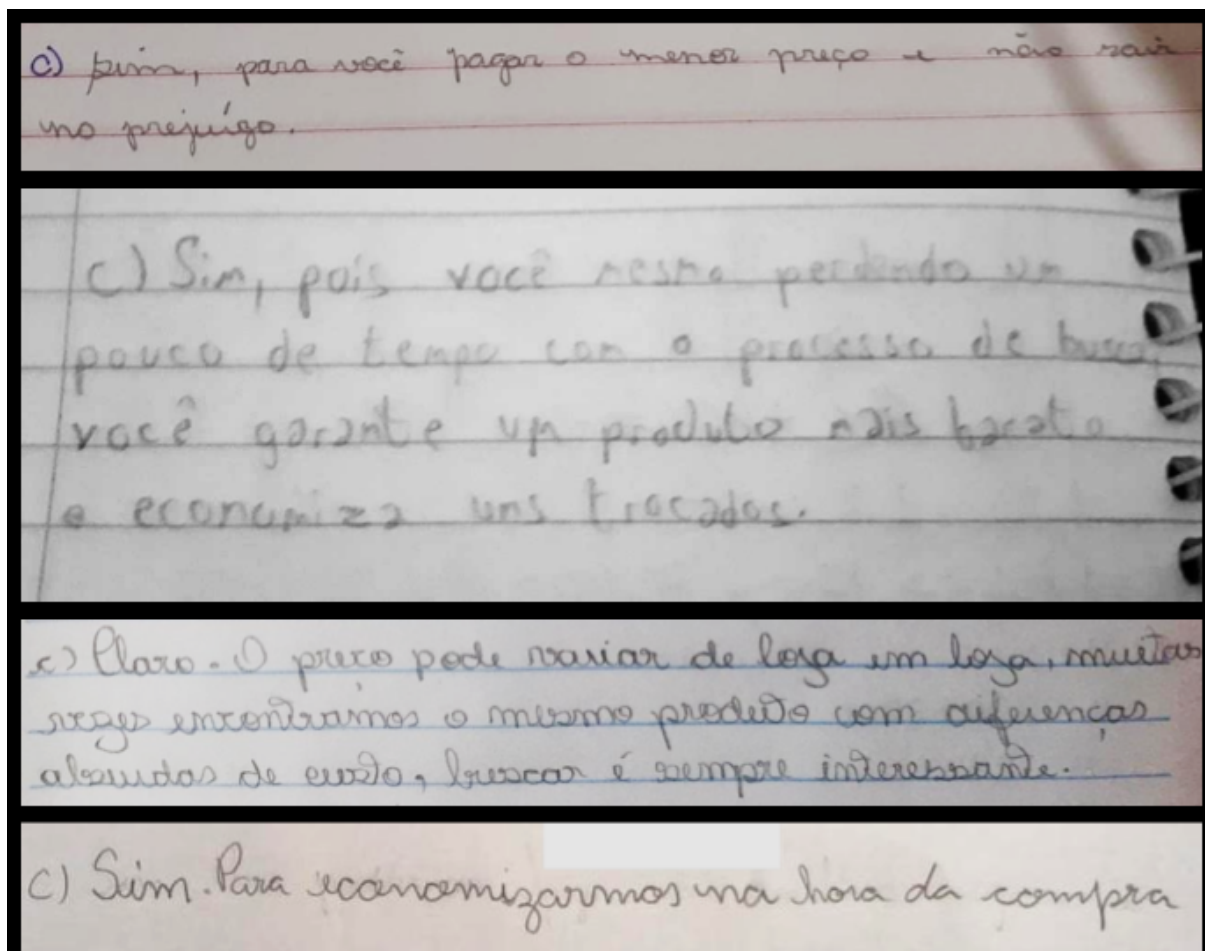 c) sim, para você pagar o menor preço e não sair
no prejuízo.
c) Sim, pois você mesmo perdendo um
pouco de tempo com o processo de busca,
você garante um produto mais barato
e economiza uns trocados.
c) Claro. O preço pode variar de loja em loja, muitas
vezes encontramos o mesmo produto com diferenças
absudas de custo, buscar é sempre interessante.
c) Sim. Para economizarmos na hora da compra